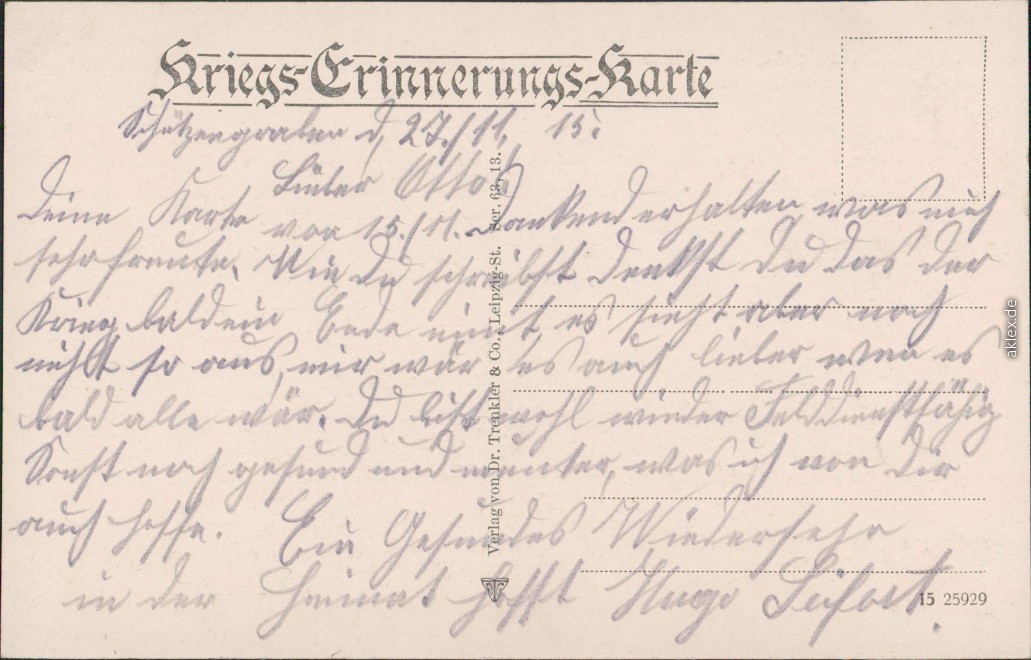 Kriegs-Erinnerungs-Karte
Schützengraben d. 27./11. 15.
Lieber Otto!
Deine Karte von 15./11. dankend erhalten, was mich
sehr freute. Wie Du schreibst denkst Du das der
Krieg bald ein Ende nimt es sieht aber noch
nicht so aus, mir wär es auch lieber wen es
bald alle wär. Du bist wohl wieder Felddienstfähig
Sonst noch gesund und munter, was ich von Dir
auch hoffe. Ein Gesundes Wiedersehn
in der Heimat hofft Hugo
Verlag von Dr. Trenkler & Co., Leipzig-St. Ser. 63, 13.
15 25929
aklex.de